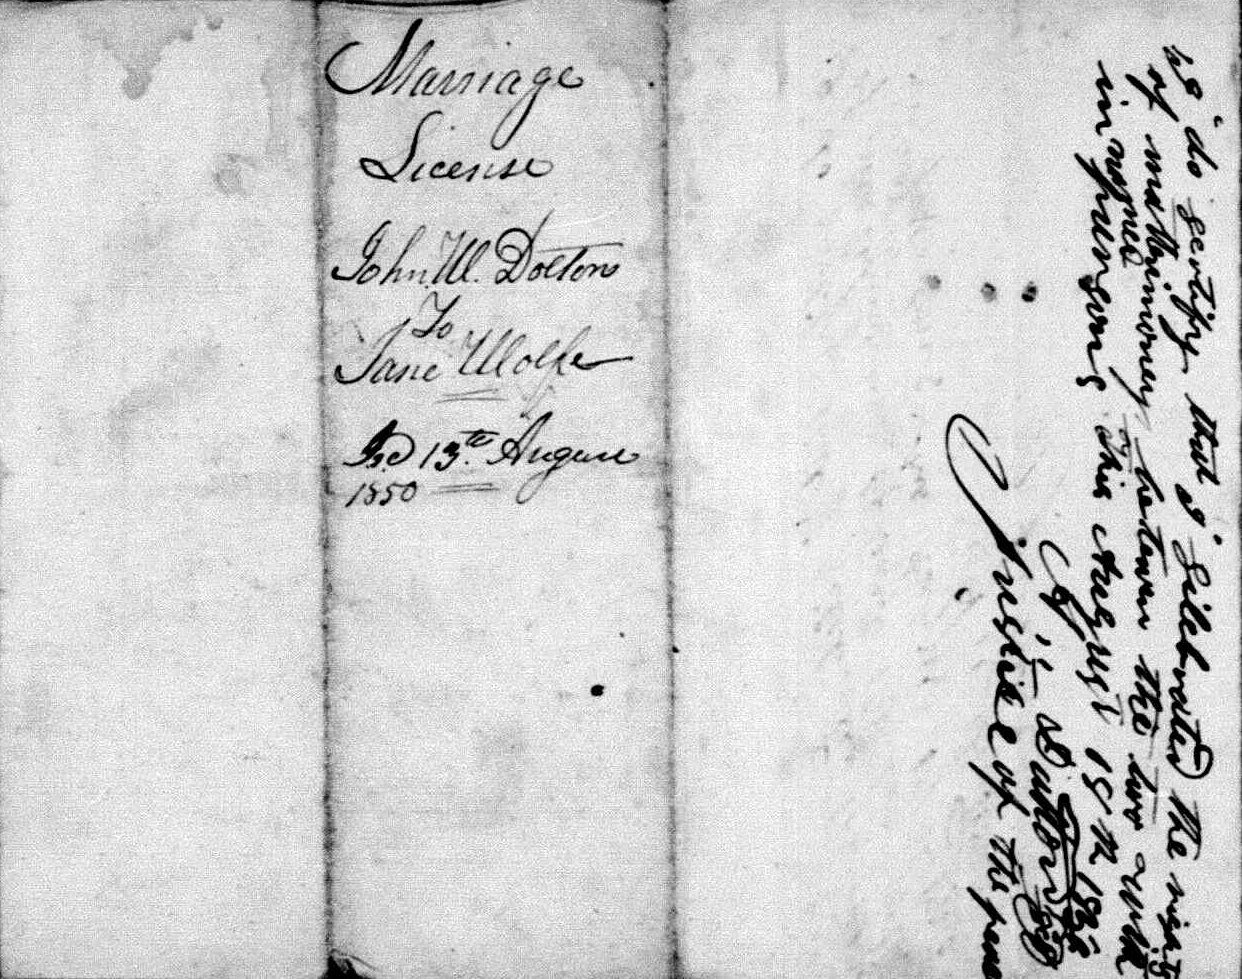 Marriage
License
John W. Dolton
To
Jane Wolfe
Isd 13th. August
1850
do sertify that i silebrated the
of mathimoney betwen the two with
in named
pursons this August 15
Justice of the peac